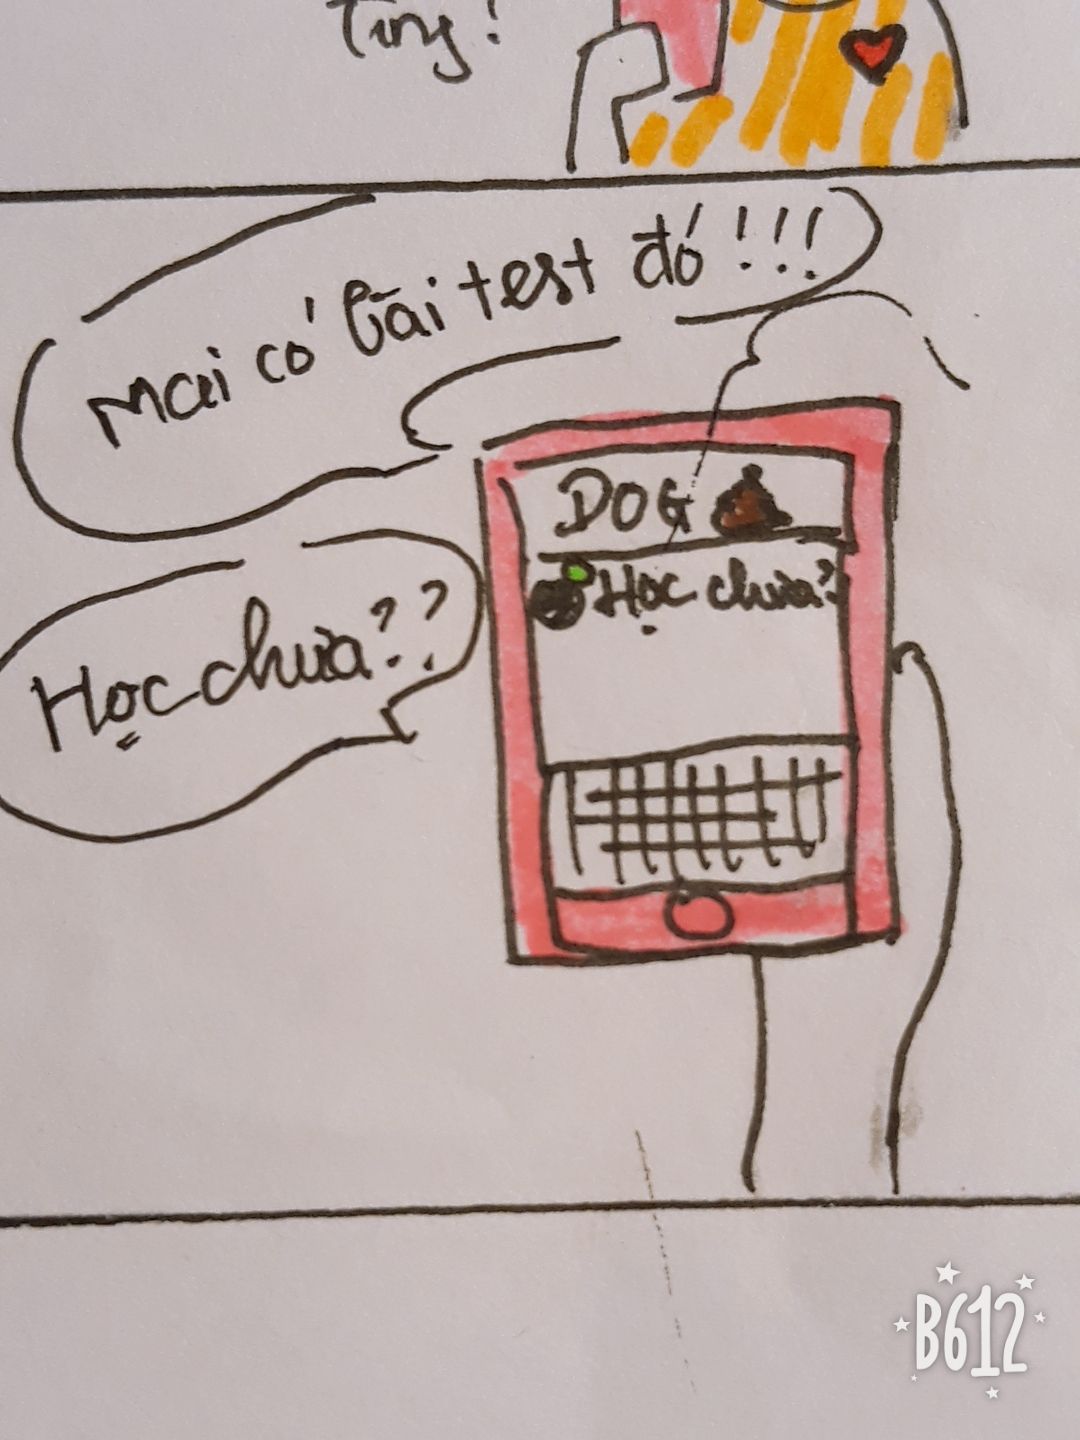 Ting!
Mai có bài test đó !!!
DOG
Học chưa?
Học chưa??
B612